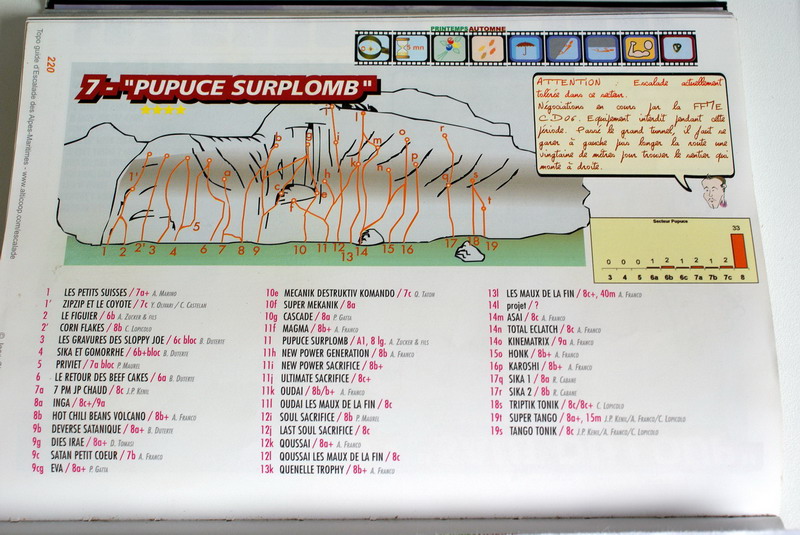 PRINTEMPS AUTOMNE
mn
Topo guide d'Escalade des Alpes-Maritimes - www.alticoop.com/escalade
220
7 - "PUPUCE SURPLOMB"
ATTENTION : Escalade actuellement
tolérée dans ce secteur.
Négociations en cours par la FFME
C.D06. Equipement interdit pendant cette
période. Passé le grand tunnel, il faut se
garer à gauche puis longer la route une
vingtaine de mètres pour trouver le sentier qui
monte à droite.
Secteur Pupuce
0 0 0 1 2 1 2 1 2 33
3 4 5 6a 6b 7a 7b 7c 8
1 2 2' 3 4 5 6 7 8 9 10 11 12 13 14 15 16 17 18 19
1 LES PETITS SUISSES / 7a+ A. MARINO
1' ZIPZIP ET LE COYOTE / 7c Y. OLIVARI / C. CASTELAN
2 LE FIGUIER / 6b A. ZUCKER & FILS
2' CORN FLAKES / 8b C. LOPICOLO
3 LES GRAVURES DES SLOPPY JOE / 6c bloc B. DUTERTE
4 SIKA ET GOMORRHE / 6b+bloc B. DUTERTE
5 PRIVIET / 7a bloc P. MAUREL
6 LE RETOUR DES BEEF CAKES / 6a B. DUTERTE
7a 7 PM JP CHAUD / 8c J.P. KENIL
8a INGA / 8c+/9a
8b HOT CHILI BEANS VOLCANO / 8b+ A. FRANCO
9b DEVERSE SATANIQUE / 8a+ B. DUTERTE
9g DIES IRAE / 8a+ D. TOMASI
9c SATAN PETIT COEUR / 7b A. FRANCO
9cg EVA / 8a+ P. GATTA
10e MECANIK DESTRUKTIV KOMANDO / 7c O. TATON
10f SUPER MEKANIK / 8a
10g CASCADE / 8a P. GATTA
11f MAGMA / 8b+ A. FRANCO
11 PUPUCE SURPLOMB / A1, 8 lg. A. ZUCKER & FILS
11h NEW POWER GENERATION / 8b A. FRANCO
11i NEW POWER SACRIFICE / 8b+
11j ULTIMATE SACRIFICE / 8c+
11k OUDAI / 8b/b+ A. FRANCO
11l OUDAI LES MAUX DE LA FIN / 8c
12i SOUL SACRIFICE / 8b P. MAUREL
12j LAST SOUL SACRIFICE / 8c
12k QOUSSAI / 8a+ A. FRANCO
12l QOUSSAI LES MAUX DE LA FIN / 8c
13k QUENELLE TROPHY / 8b+ A. FRANCO
13l LES MAUX DE LA FIN / 8c+, 40m A. FRANCO
14l projet / ?
14m ASAI / 8c A. FRANCO
14n TOTAL ECLATCH / 8c A. FRANCO
14o KINEMATRIX / 9a A. FRANCO
15o HONK / 8b+ A. FRANCO
16p KAROSHI / 8b+ A. FRANCO
17q SIKA 1 / 8a R. CABANE
17r SIKA 2 / 8b R. CABANE
18s TRIPTIK TONIK / 8c/8c+ C. LOPICOLO
19t SUPER TANGO / 8a+, 15m J.P. KENIL/A. FRANCO/C. LOPICOLO
19s TANGO TONIK / 8c J.P. KENIL/A. FRANCO/C. LOPICOLO